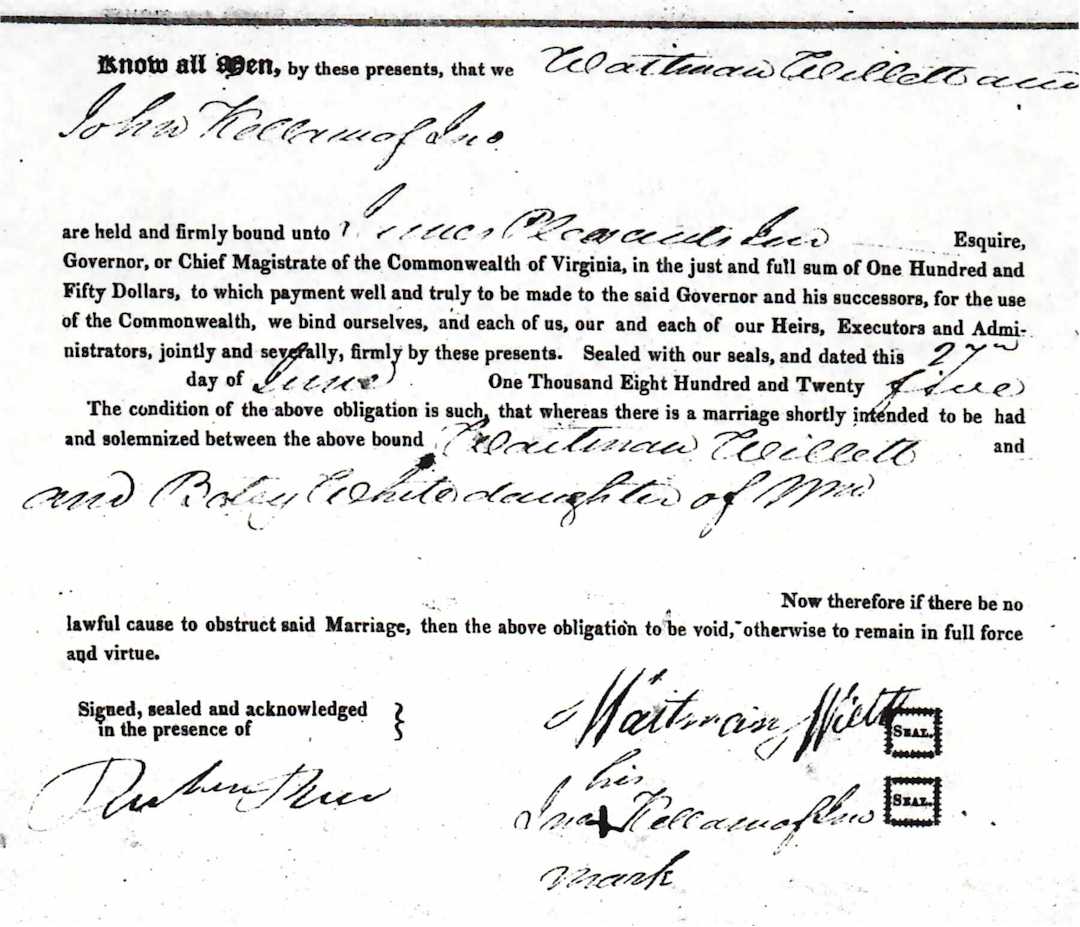 Know all Men, by these presents, that we Waitman Willett and
John Kellam of Jno.
are held and firmly bound unto James Pleasants Jun Esquire,
Governor, or Chief Magistrate of the Commonwealth of Virginia, in the just and full sum of One Hundred and
Fifty Dollars, to which payment well and truly to be made to the said Governor and his successors, for the use
of the Commonwealth, we bind ourselves, and each of us, our and each of our Heirs, Executors and Admi-
nistrators, jointly and severally, firmly by these presents. Sealed with our seals, and dated this 27th
day of June One Thousand Eight Hundred and Twenty five
The condition of the above obligation is such, that whereas there is a marriage shortly intended to be had
and solemnized between the above bound Waitman Willett and
and White daughter of Wm
Now therefore if there be no
lawful cause to obstruct said Marriage, then the above obligation to be void, otherwise to remain in full force
and virtue.
Signed, sealed and acknowledged
in the presence of
Waitman Willett SEAL.
his
Jno + Kellam of Jno SEAL.
mark